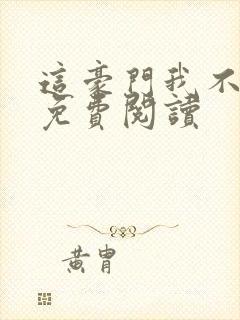 這豪門我不
免費閱讀
黃胄